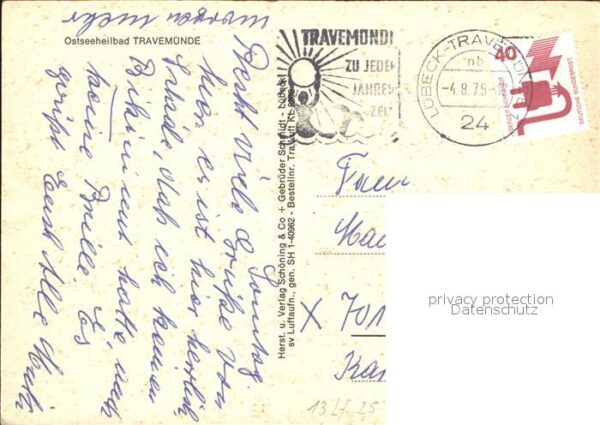 Ostseeheilbad TRAVEMÜNDE
morgen mehr
Sonntag
Recht viele Grüße von
hier, es ist hier herrlich
Schade, daß ich keinen
Bikini mit hatte, und
keine Brille. Es
grüßt Euch Alle
Herst. u. Verlag Schöning & Co + Gebrüder Schmidt - Lübeck
sv Luftaufn., gen. SH 1-40962 - Bestellnr. Trav Luft Kt
TRAVEMÜNDE
ZU JEDER
JAHRES
ZEIT
LÜBECK-TRAVEMÜNDE
nb
-4.8.75-
24
40
DEUTSCHE BUNDESPOST
Fam
X 701
privacy protection
Datenschutz